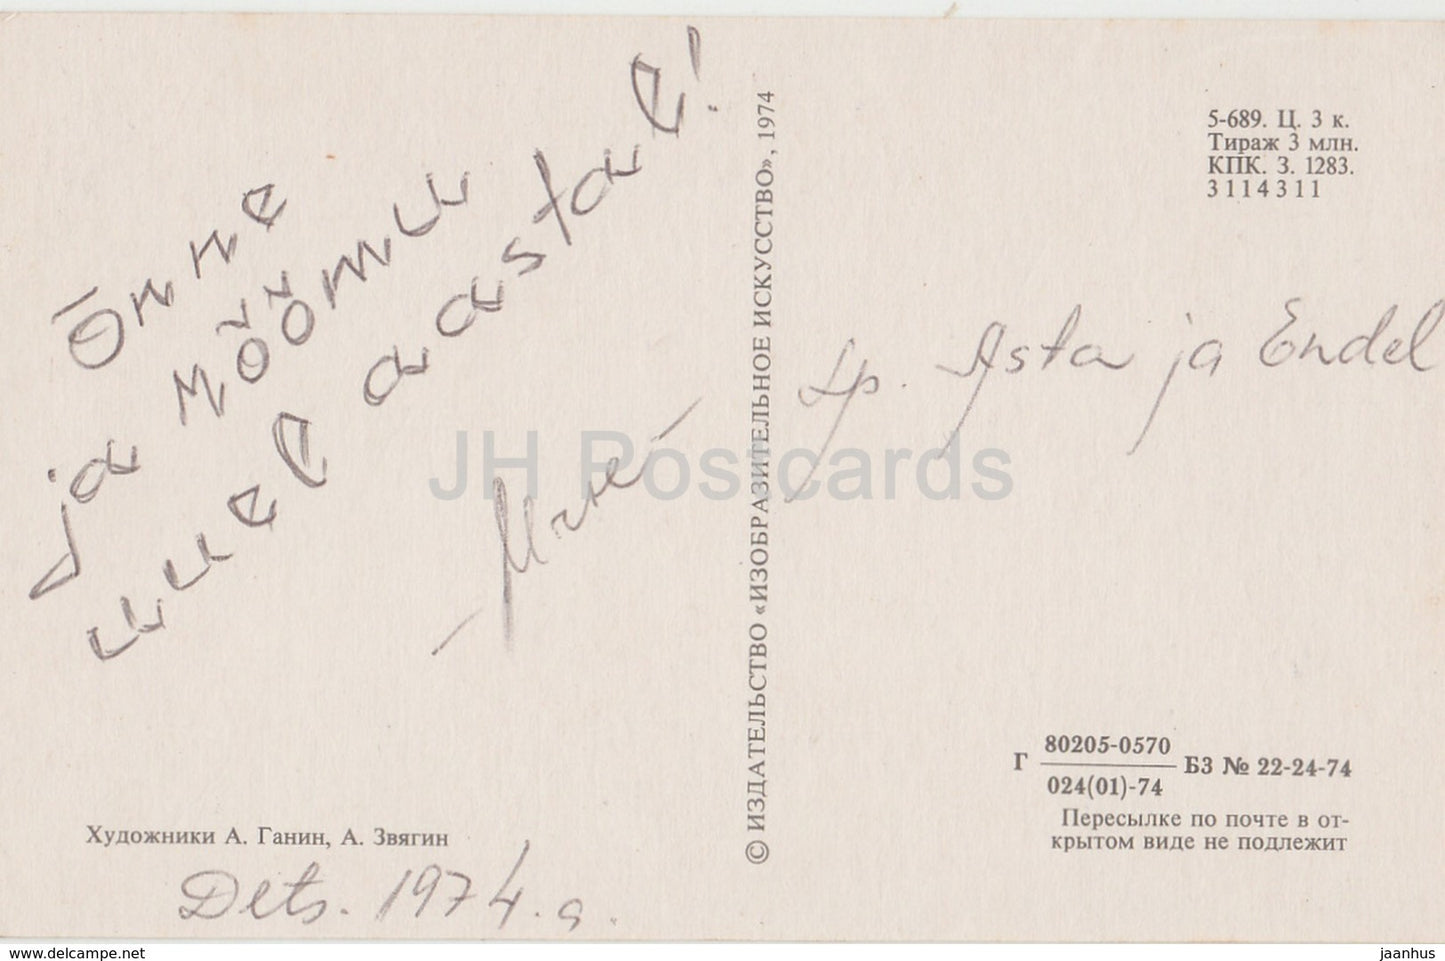 Õnne
ja rõõmu
uuel aastal!
Lp. Asta ja Endel
Dets. 1974.a.
Художники А. Ганин, А. Звягин
© ИЗДАТЕЛЬСТВО «ИЗОБРАЗИТЕЛЬНОЕ ИСКУССТВО», 1974
5-689. Ц. 3 к.
Тираж 3 млн.
КПК. З. 1283.
3114311
Г 80205-0570 БЗ № 22-24-74
024(01)-74
Пересылке по почте в от-
крытом виде не подлежит
JH Postcards
www.delcampe.net
jaanhus